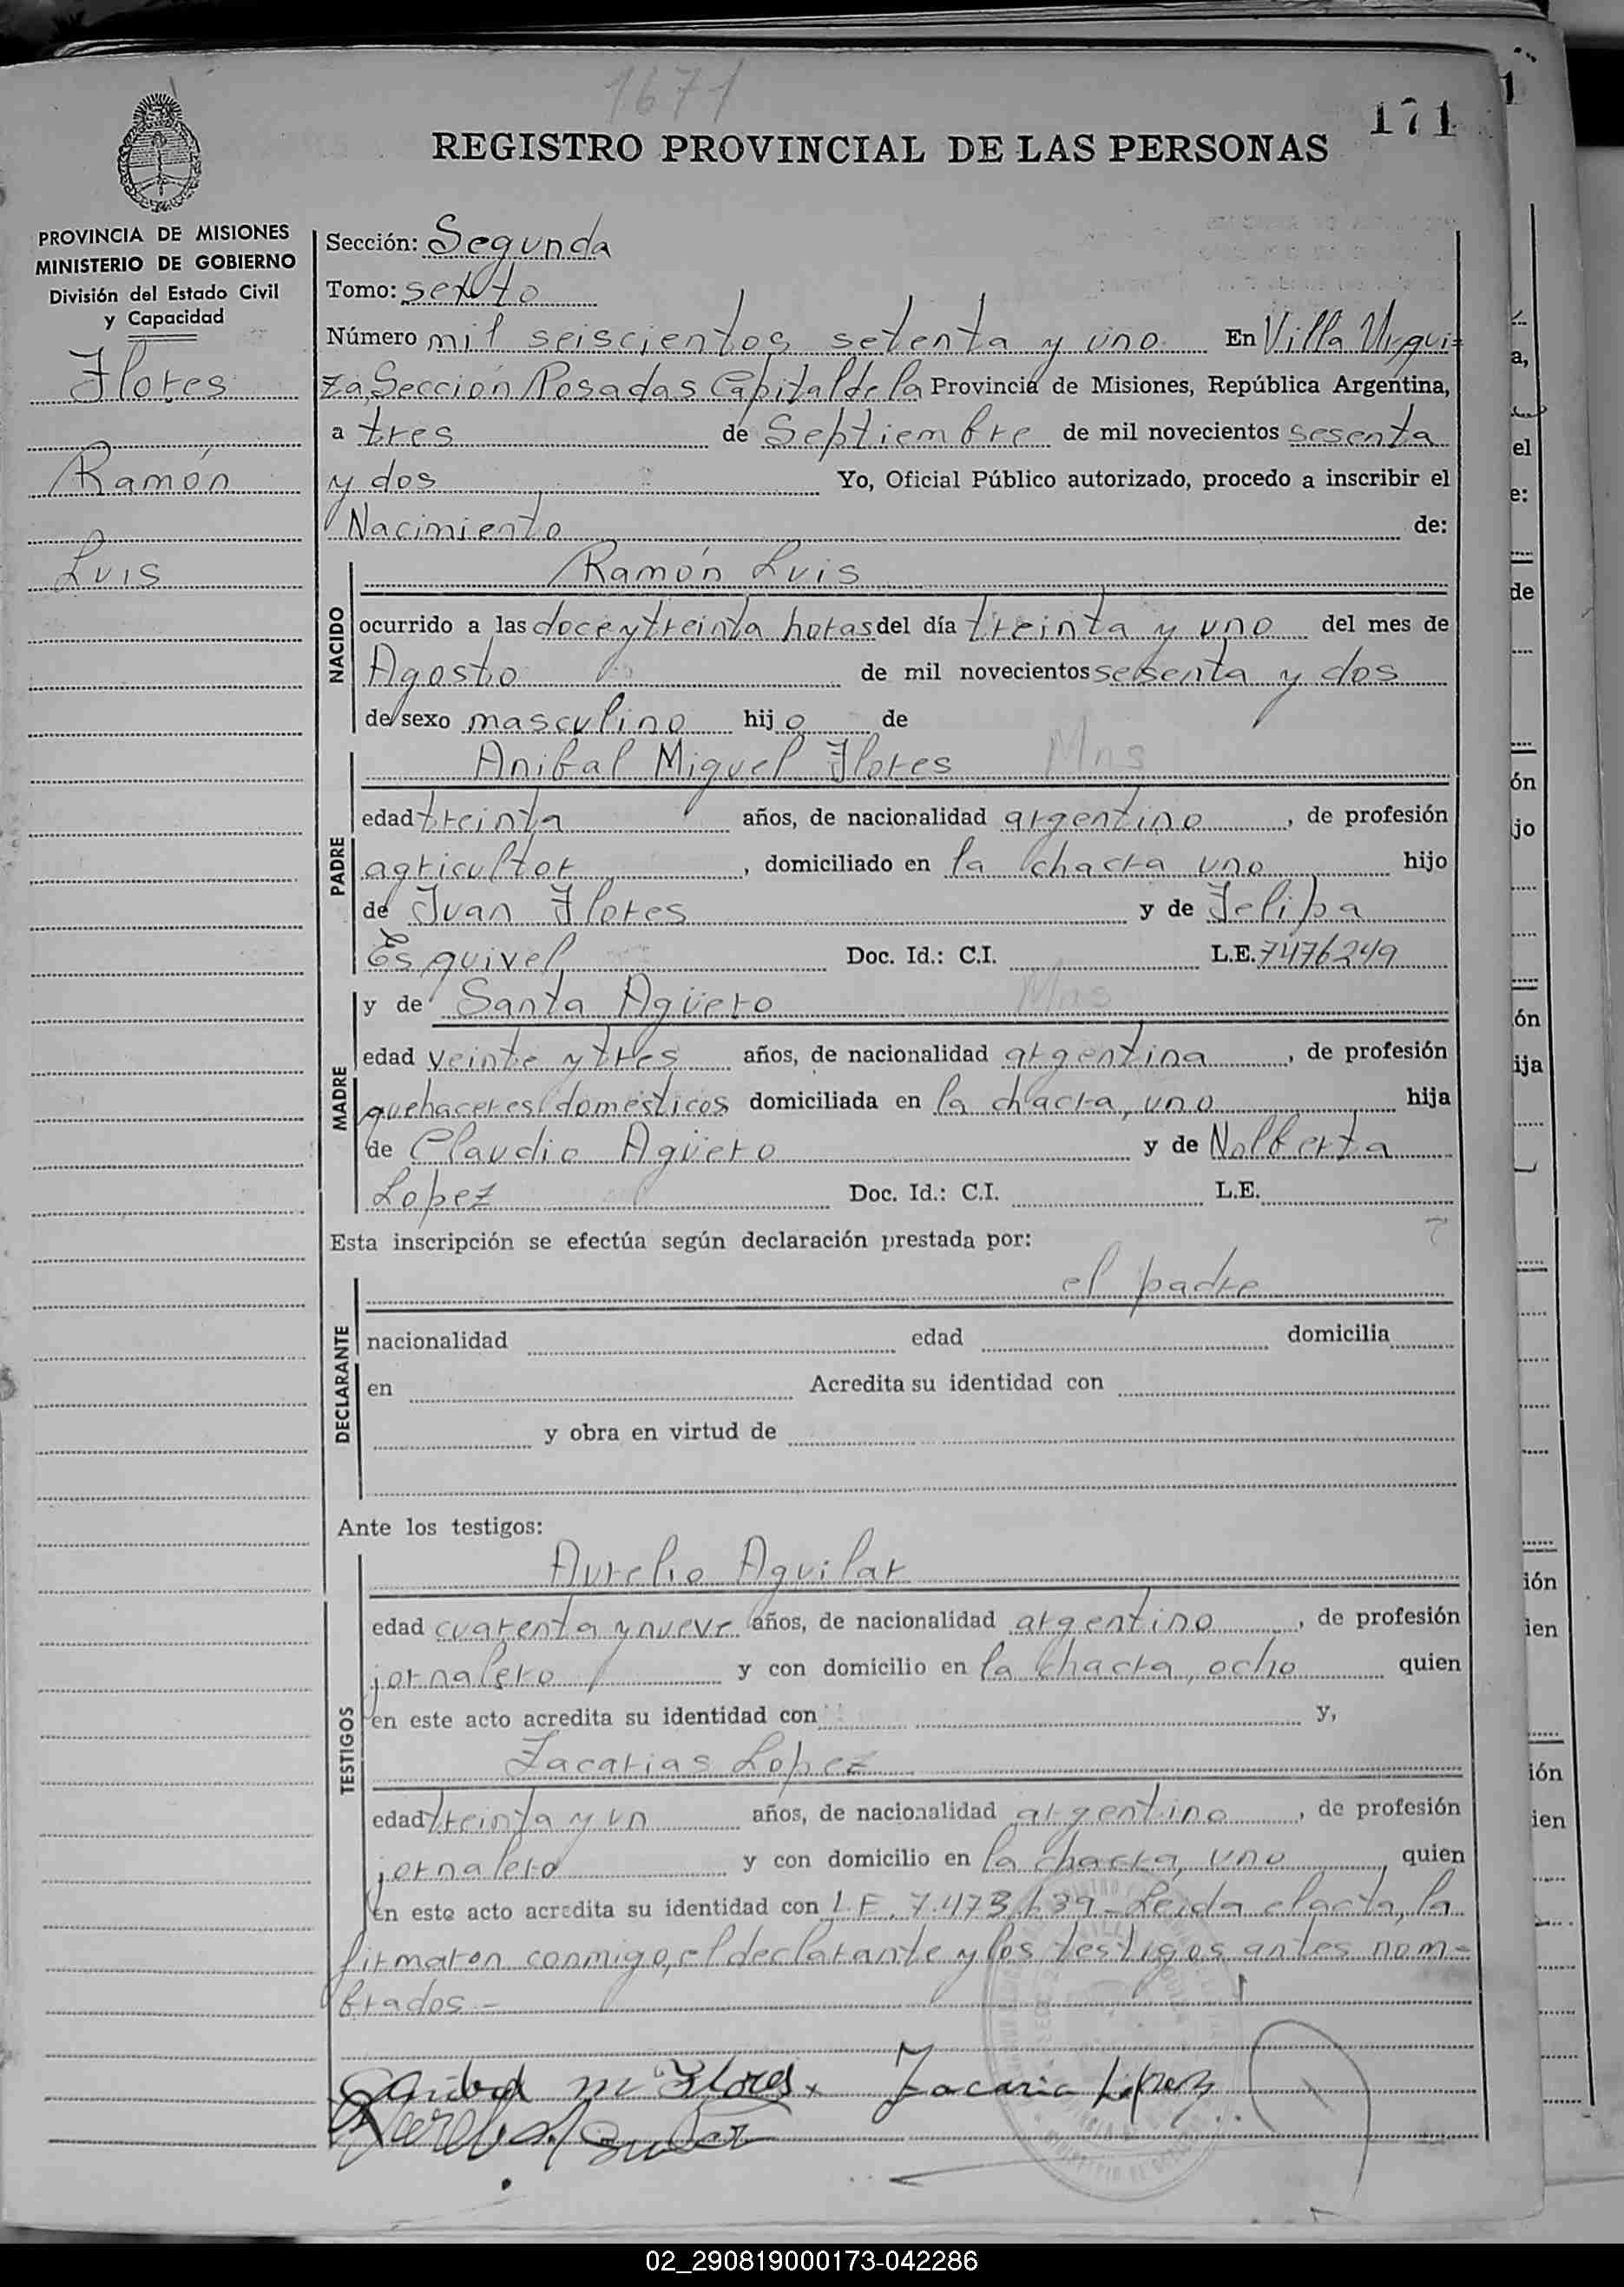 1671
171
REGISTRO PROVINCIAL DE LAS PERSONAS
PROVINCIA DE MISIONES
MINISTERIO DE GOBIERNO
División del Estado Civil
y Capacidad
Flores
Ramón
Luis
Sección: Segunda
Tomo: sexto
Número mil seiscientos setenta y uno En Villa Urqui=
za, Sección Posadas Capital de la Provincia de Misiones, República Argentina,
a tres de Septiembre de mil novecientos sesenta
y dos Yo, Oficial Público autorizado, procedo a inscribir el
Nacimiento de:
NACIDO
Ramón Luis
ocurrido a las doce y treinta horas del día treinta y uno del mes de
Agosto de mil novecientos sesenta y dos
de sexo masculino hijo de
PADRE
Anibal Miguel Flores Mns
edad treinta años, de nacionalidad argentino, de profesión
agricultor, domiciliado en la chacra uno hijo
de Juan Flores y de Felipa
Esquivel Doc. Id.: C.I. L.E. 7476249
MADRE
y de Santa Agüero Mns
edad veinte y tres años, de nacionalidad argentina, de profesión
quehaceres domésticos domiciliada en la chacra, uno hija
de Claudio Agüero y de Nolberta
Lopez Doc. Id.: C.I. L.E.
Esta inscripción se efectúa según declaración prestada por:
DECLARANTE
el padre
nacionalidad edad domicilia
en Acredita su identidad con
y obra en virtud de
Ante los testigos:
TESTIGOS
Aurelio Aguilar
edad cuarenta y nueve años, de nacionalidad argentino, de profesión
jornalero y con domicilio en la chacra, ocho quien
en este acto acredita su identidad con y,
Zacarias Lopez
edad treinta y un años, de nacionalidad argentino, de profesión
jornalero y con domicilio en la chacra, uno, quien
en este acto acredita su identidad con L.E. 7.473.139_Leida el acta, la
firmaron conmigo, el declarante y los testigos antes nom=
brados.-
Anibal M Flores Zacaria López
02_290819000173-042286